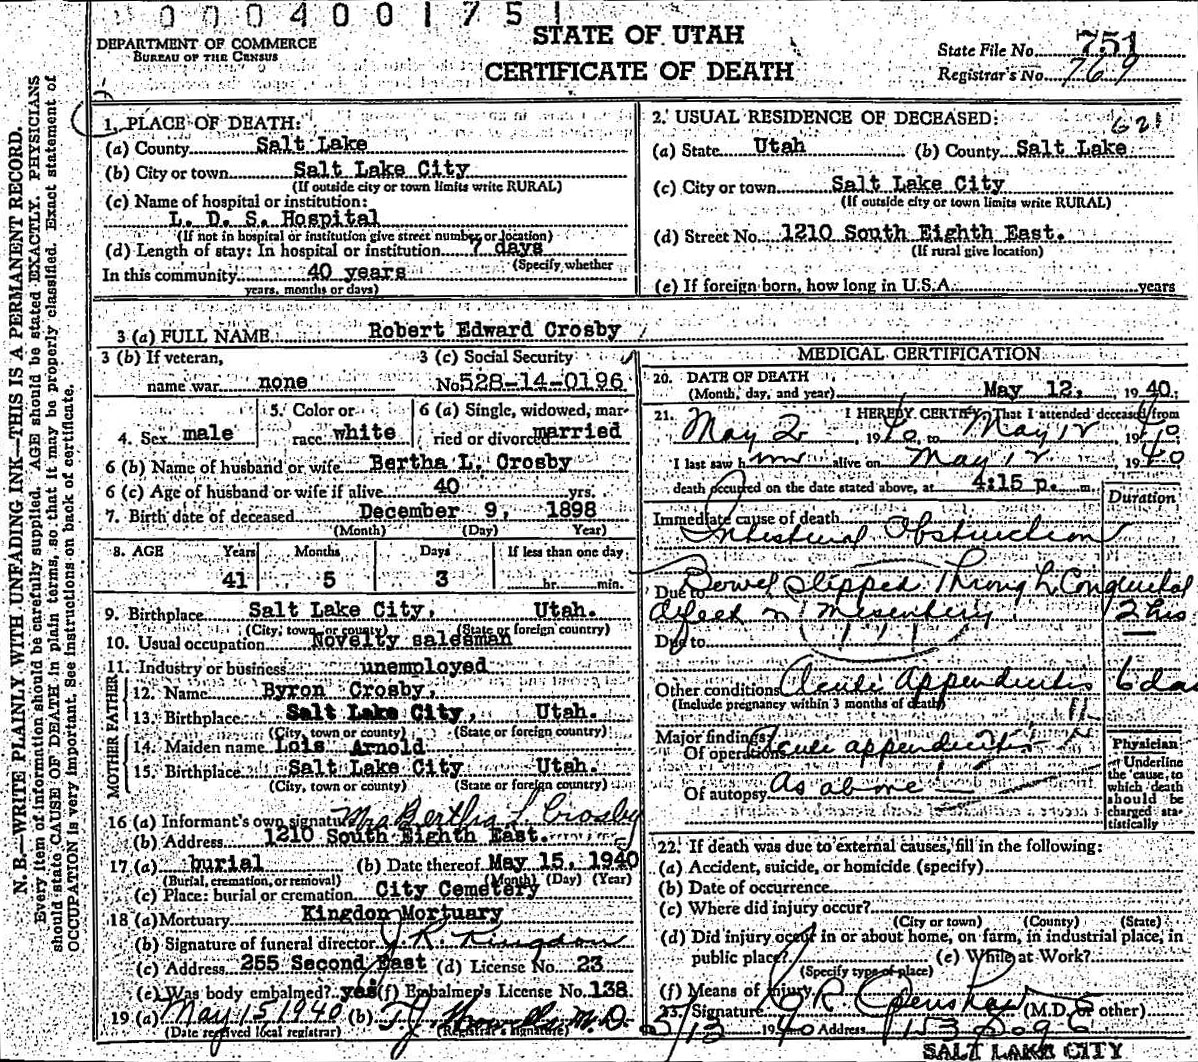 0004001751
DEPARTMENT OF COMMERCE
BUREAU OF THE CENSUS
STATE OF UTAH
CERTIFICATE OF DEATH
State File No. 751
Registrar's No. 769
N. B.—WRITE PLAINLY WITH UNFADING INK—THIS IS A PERMANENT RECORD.
Every item of information should be carefully supplied. AGE should be stated EXACTLY. PHYSICIANS
should state CAUSE OF DEATH in plain terms, so that it may be properly classified. Exact statement of
OCCUPATION is very important. See instructions on back of certificate.
1. PLACE OF DEATH:
(a) County Salt Lake
(b) City or town Salt Lake City
(If outside city or town limits write RURAL)
(c) Name of hospital or institution:
L. D. S. Hospital
(If not in hospital or institution give street number or location)
(d) Length of stay: In hospital or institution 7 days
(Specify whether
In this community 40 years
years, months or days)
2. USUAL RESIDENCE OF DECEASED: 621
(a) State Utah (b) County Salt Lake
(c) City or town Salt Lake City
(If outside city or town limits write RURAL)
(d) Street No. 1210 South Eighth East.
(If rural give location)
(e) If foreign born, how long in U.S.A. years
3 (a) FULL NAME Robert Edward Crosby
3 (b) If veteran,
name war none
3 (c) Social Security
No 528-14-0196
4. Sex male
5. Color or
race white
6 (a) Single, widowed, mar-
ried or divorced married
6 (b) Name of husband or wife Bertha L. Crosby
6 (c) Age of husband or wife if alive 40 yrs.
7. Birth date of deceased December 9, 1898
(Month) (Day) Year)
8. AGE Years Months Days If less than one day
41 5 3 hr. min.
9. Birthplace Salt Lake City, Utah.
(City, town, or county) (State or foreign country)
10. Usual occupation Novelty salesman
11. Industry or business unemployed
FATHER
12. Name Byron Crosby,
13. Birthplace Salt Lake City, Utah.
(City, town or county) (State or foreign country)
MOTHER
14. Maiden name Lois Arnold
15. Birthplace Salt Lake City Utah.
(City, town or county) (State or foreign country)
16 (a) Informant's own signature Mrs Bertha L. Crosby
(b) Address 1210 South Eighth East.
17 (a) burial (b) Date thereof May 15, 1940
(Burial, cremation, or removal) (Month) (Day) (Year)
(c) Place: burial or cremation City Cemetery
18 (a) Mortuary Kingdon Mortuary
(b) Signature of funeral director J. R. Kingdon
(c) Address 255 Second East (d) License No. 23
(e) Was body embalmed? yes (f) Embalmer's License No. 138
19 (a) May 15 1940 (b) T. J. M.D.
(Date received local registrar) (Registrar's signature)
MEDICAL CERTIFICATION
20. DATE OF DEATH
(Month, day, and year) May 12, 1940.
21. I HEREBY CERTIFY, That I attended deceased from
May 2, 1940, to May 12 1940
I last saw him alive on May 12 1940
death occurred on the date stated above, at 4:15 p. m.
Duration
Immediate cause of death
Intestinal Obstruction
Due to Bowel slipped Through Congenital
defect in Mesentery 2 hrs
Due to
Other conditions Acute Appendicitis 6 da
(Include pregnancy within 3 months of death)
Major findings:
Of operations Acute appendicitis
Of autopsy As above
Physician
Underline
the cause to
which death
should be
charged sta-
tistically
22. If death was due to external causes, fill in the following:
(a) Accident, suicide, or homicide (specify)
(b) Date of occurrence
(c) Where did injury occur?
(City or town) (County) (State)
(d) Did injury occur in or about home, on farm, in industrial place, in
public place? (e) While at Work?
(Specify type of place)
(f) Means of Injury
23. Signature R Openshaw (M.D. or other)
5/13 1940 Address 153 So 9 E
SALT LAKE CITY